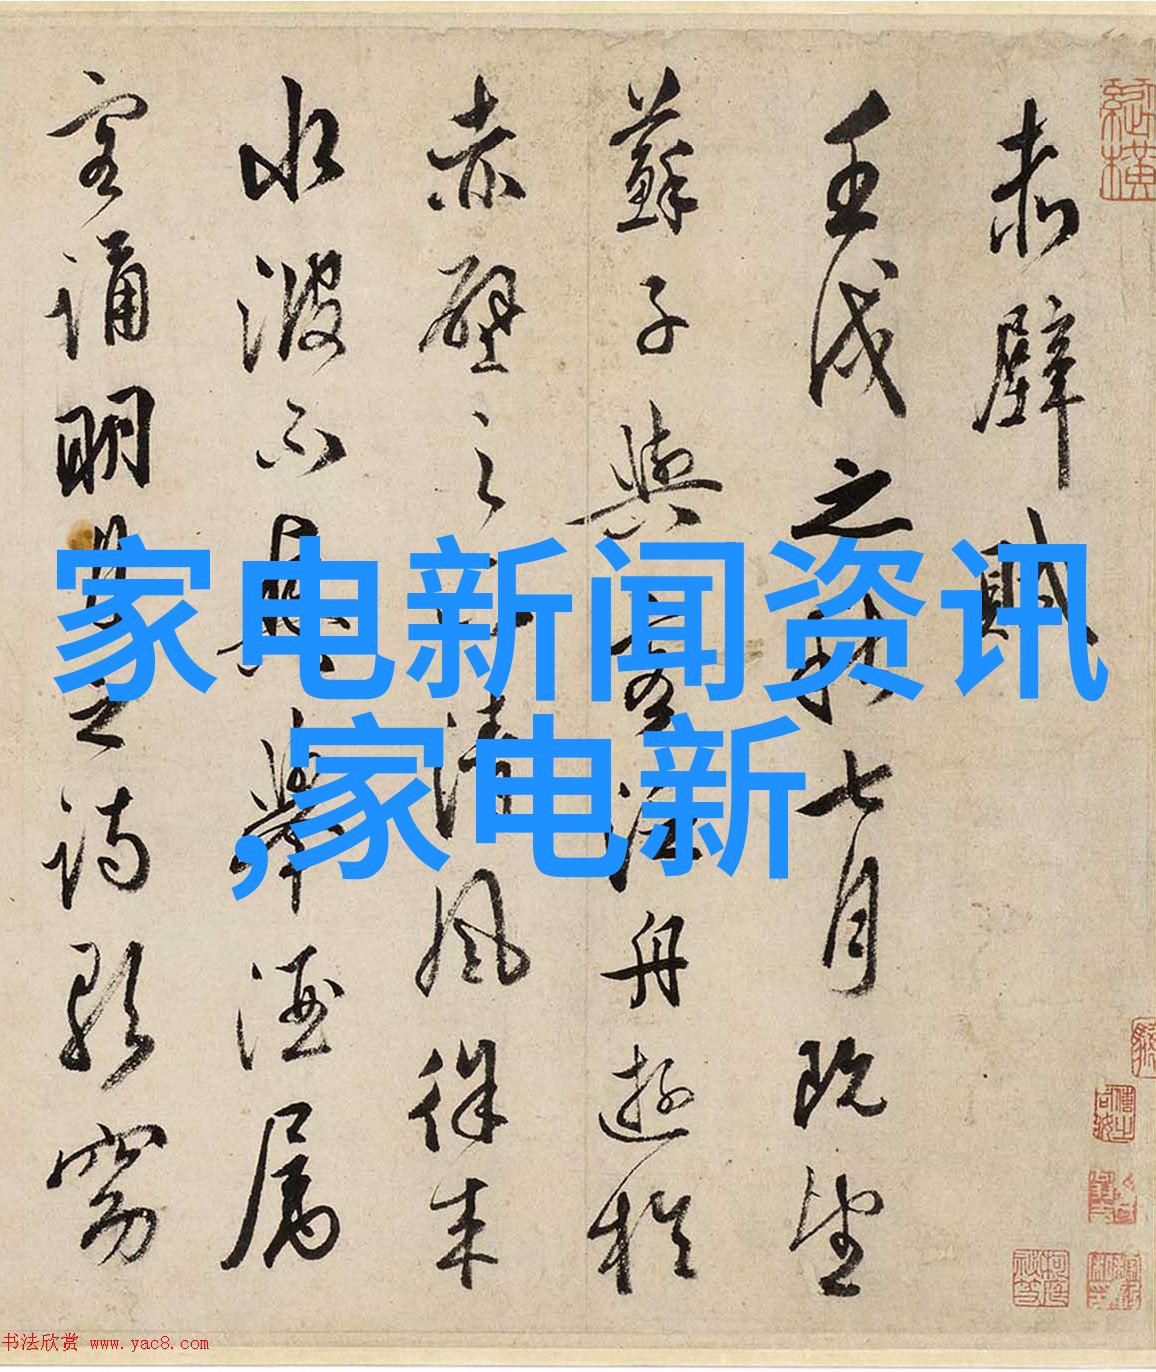 赤壁賦
壬戌之秋七月既望
蘇子與客泛舟遊於
赤壁之下清風徐來
水波不興舉酒屬
客誦明月之詩歌窈
家电新闻资讯
,家电新
书法欣赏 www.yac8.com